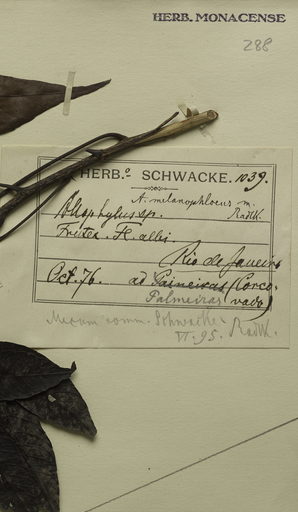 HERB. MONACENSE
288
HERB.º SCHWACKE. 1039.
A. melanophloeus m. Radlk.
Allophylus sp.
Frutex. Fl. albi.
Rio de Janeiro
Oct. 76. ad Paineiras (Corco-
Palmeiras vado)
Mecum comm. Schwacke
VI. 95. Radlk.